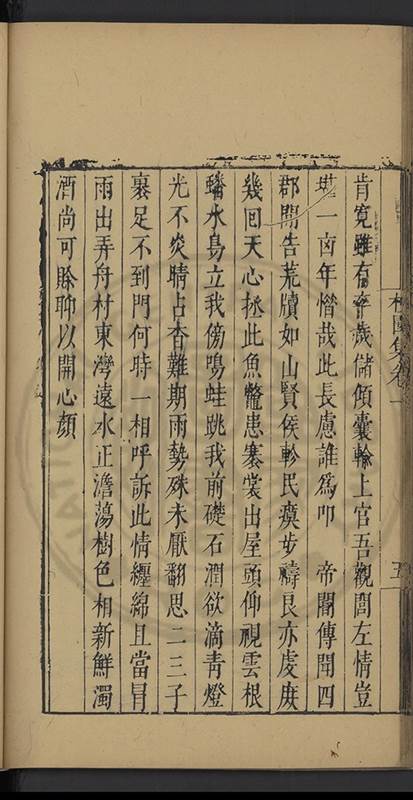 肯寛雖有卒歲儲傾囊輸上官吾觀閭左情豈
堪一凶年憯哉此長慮誰爲叩　帝閽傳聞四
郡開告荒牘如山賢侯軫民瘼步禱良亦虔庻
幾回天心拯此魚鼈患褰裳出屋頭仰視雲根
蟠水鳥立我傍鳴蛙跳我前礎石潤欲滴青燈
光不炎晴占杳難期雨勢殊未厭翻思二三子
裹足不到門何時一相呼訴此情纏綿且當冐
雨出弄舟村東灣遠水正澹蕩樹色相新鮮濁
酒尚可賖聊以開心顔
園集卷一
五